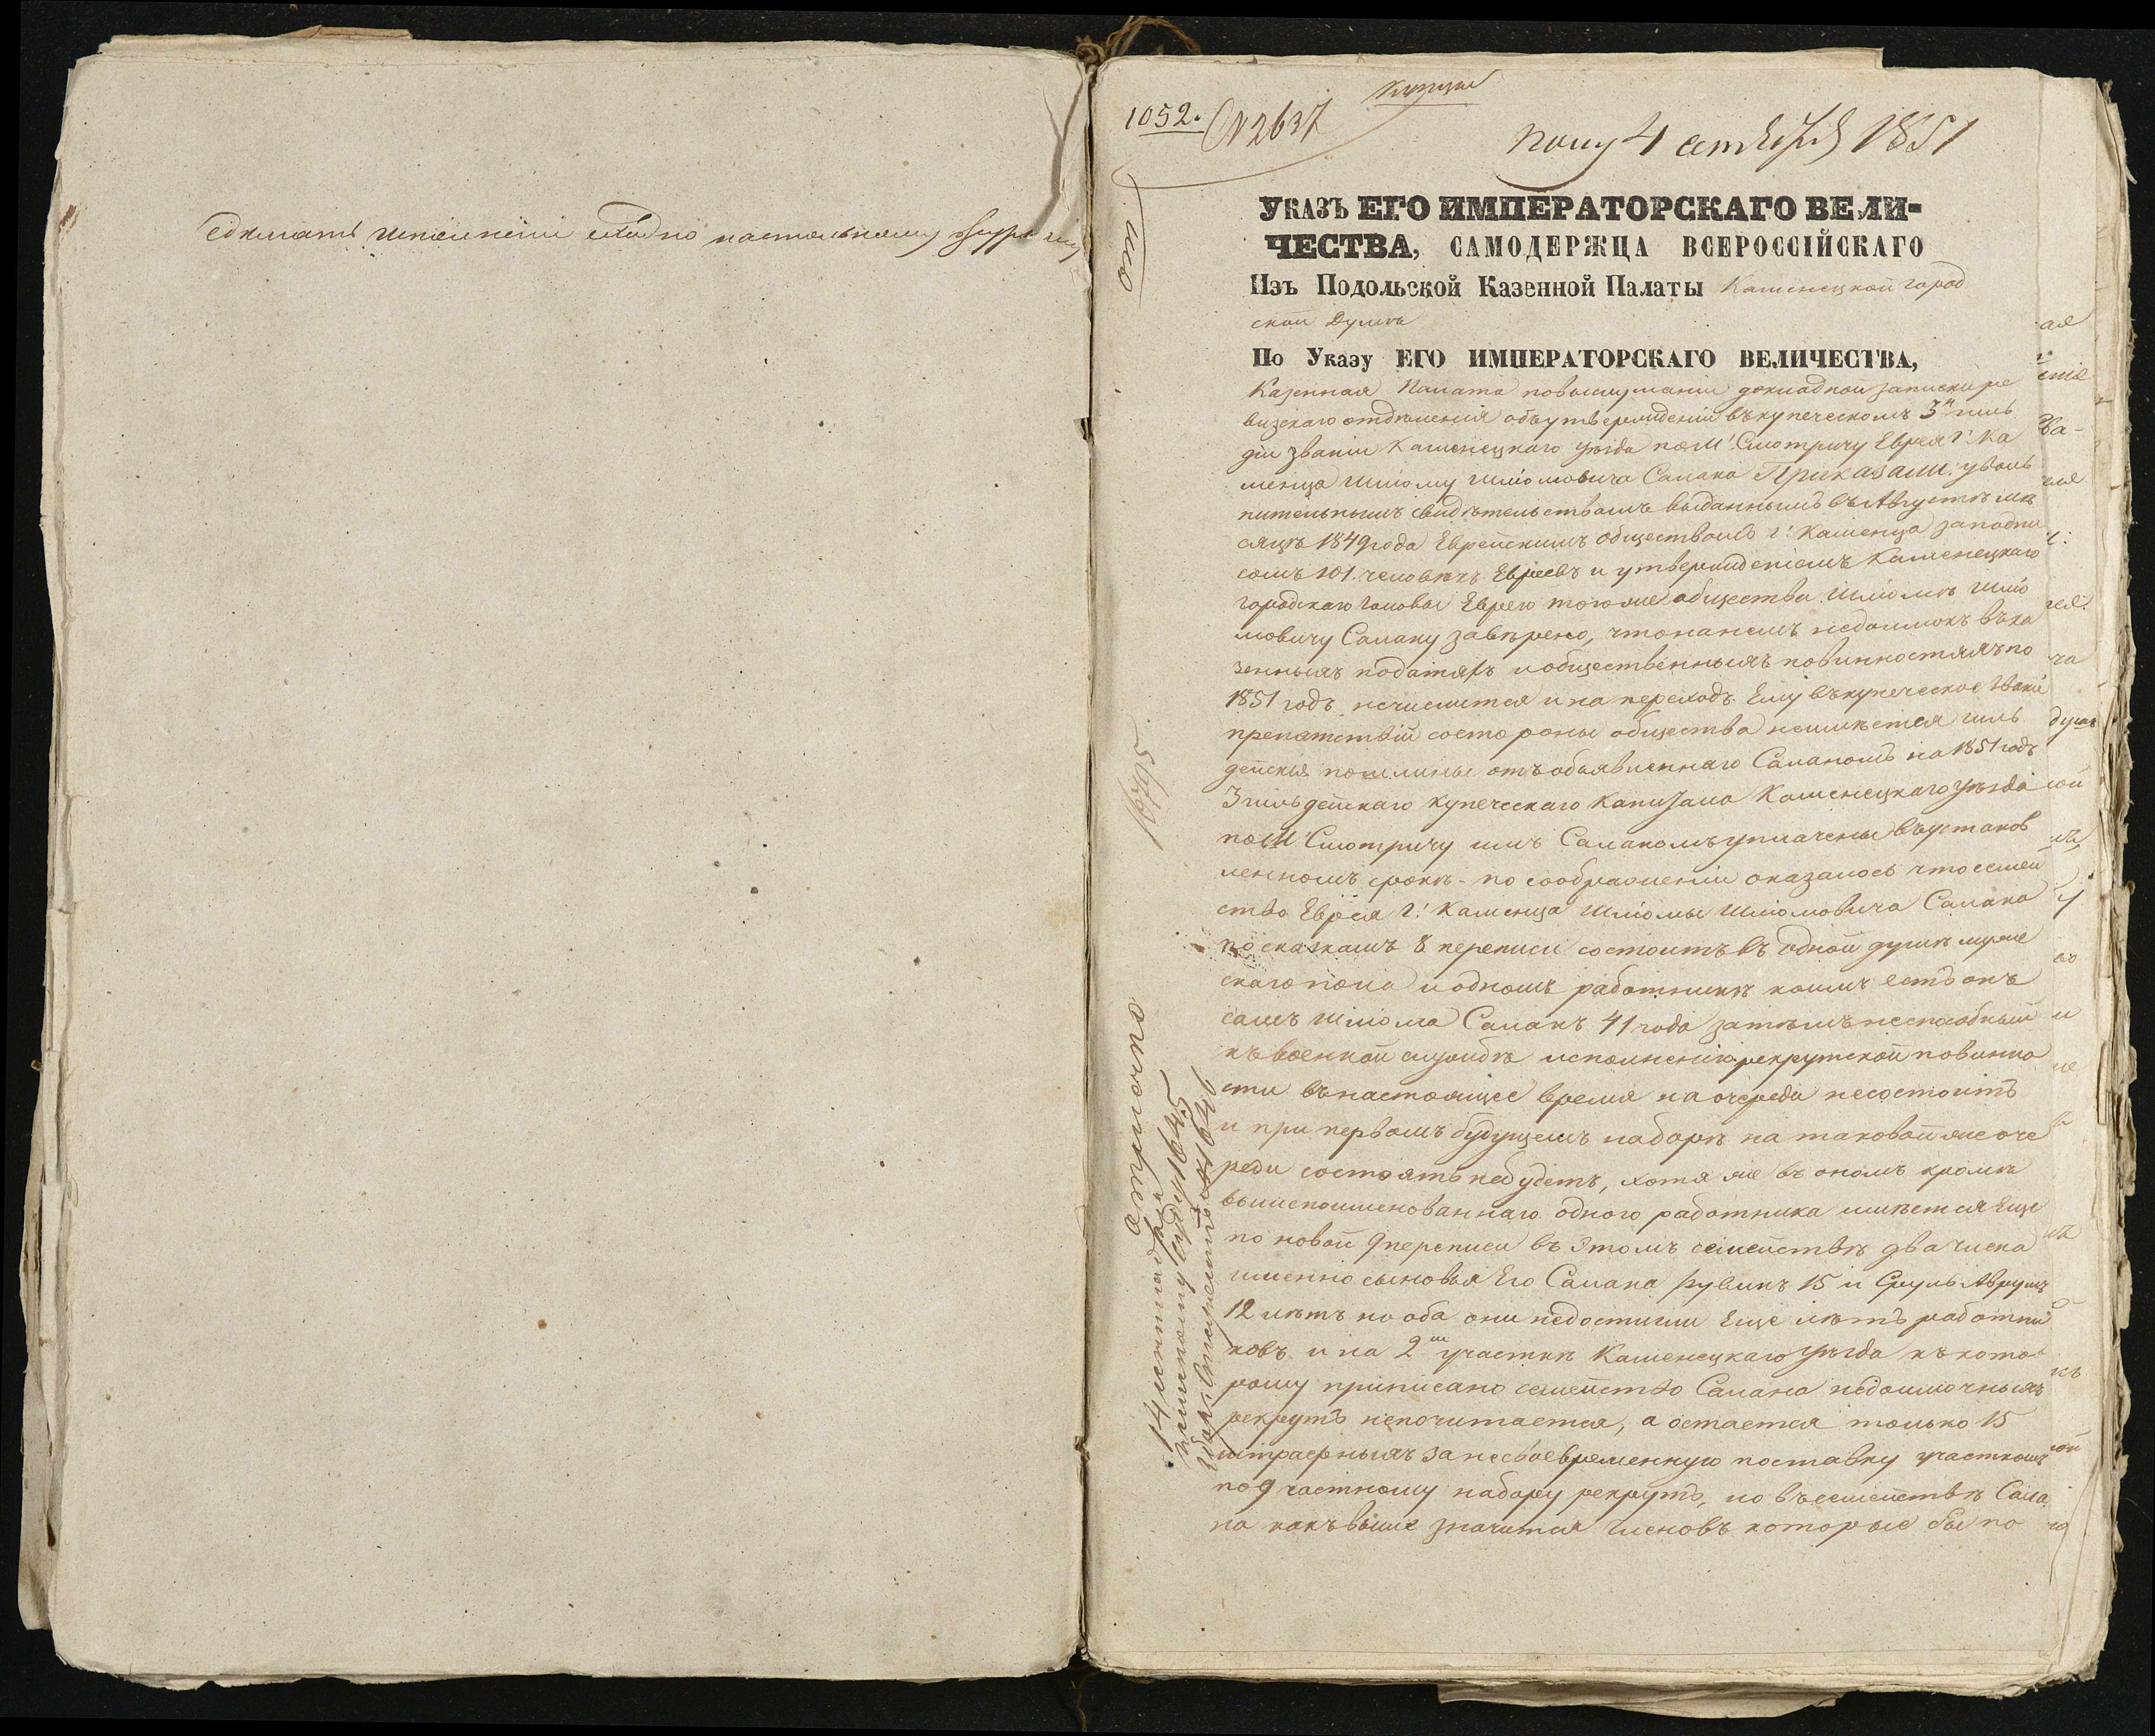 сделать исполнение по настольному
1052. N 2637
пол 4 сентября 1851
УКАЗЪ ЕГО ИМПЕРАТОРСКАГО ВЕЛИ-
ЧЕСТВА, САМОДЕРЖЦА ВСЕРОССІЙСКАГО
Изъ Подольской Казенной Палаты Каменецкой город
ской Думѣ
По Указу ЕГО ИМПЕРАТОРСКАГО ВЕЛИЧЕСТВА,
Казенная Палата повыслушаніи докладной записки ре
визскаго отдѣленія объ утвержденіи въ купеческомъ 3й гиль
діи званіи Каменецкаго уѣзда пом: Смотричу Еврея г: Ка
менца Шліому Шліомовича Салана Приказали: уволь
нительнымъ свидѣтельствомъ выданнымъ въ Августѣ мѣ
сяцѣ 1849 года Еврейскимъ обществомъ г: Каменца заподпи
сомъ 101. человѣкъ Евреевъ и утвержденіемъ Каменецкаго
городскаго Головы Еврею тогоже общества Шліомѣ Шліо
мовичу Салану завѣрено, что на немъ недоимокъ въ ка
зенныхъ податяхъ и общественныхъ повинностяхъ по
1851 годъ нечислится и на переходъ Ему въ купеческое званіе
препятствій состороны общества неимѣется гиль
дейскія пошлины отъ объявленнаго Саланомъ на 1851 годъ
3 гильдейскаго купеческаго Капитала Каменецкаго уѣзда
пом Смотричу имъ Саланомъ уплачены въ установ
ленномъ срокѣ - по соображеніи оказалось что семей
ство Еврея г: Каменца Шліомы Шліомовича Салана
по сказкамъ 8 переписи состоитъ въ одной душѣ муже
скаго пола и одномъ работникѣ коимъ есть онъ
самъ Шлиома Саланъ 41 года затѣмъ неспособный
къ военной службѣ исполненію рекрутской повинно
сти въ настоящее время на очереди несостоитъ
и при первомъ будущемъ наборѣ на таковой же оче
реди состоять небудетъ, хотя же въ ономъ кромѣ
вышепоименованнаго одного работника имѣется Еще
по новой 9 переписи въ этомъ семействѣ два члена
именно сыновья Его Салана Рувинъ 15 и Сруль Аврумъ
12 лѣтъ но оба они недостигли Еще лѣтъ работни
ковъ и на 2м участкѣ Каменецкаго уѣзда къ кото
рому приписано семейство Салана недоимочныхъ
рекрутъ непочитается, а остается только 15
штрафныхъ за несвоевременную поставку участкомъ
по 9 частному набору рекрутъ, но въ семействѣ Сала
на какъ выше значится членовъ которые бы по